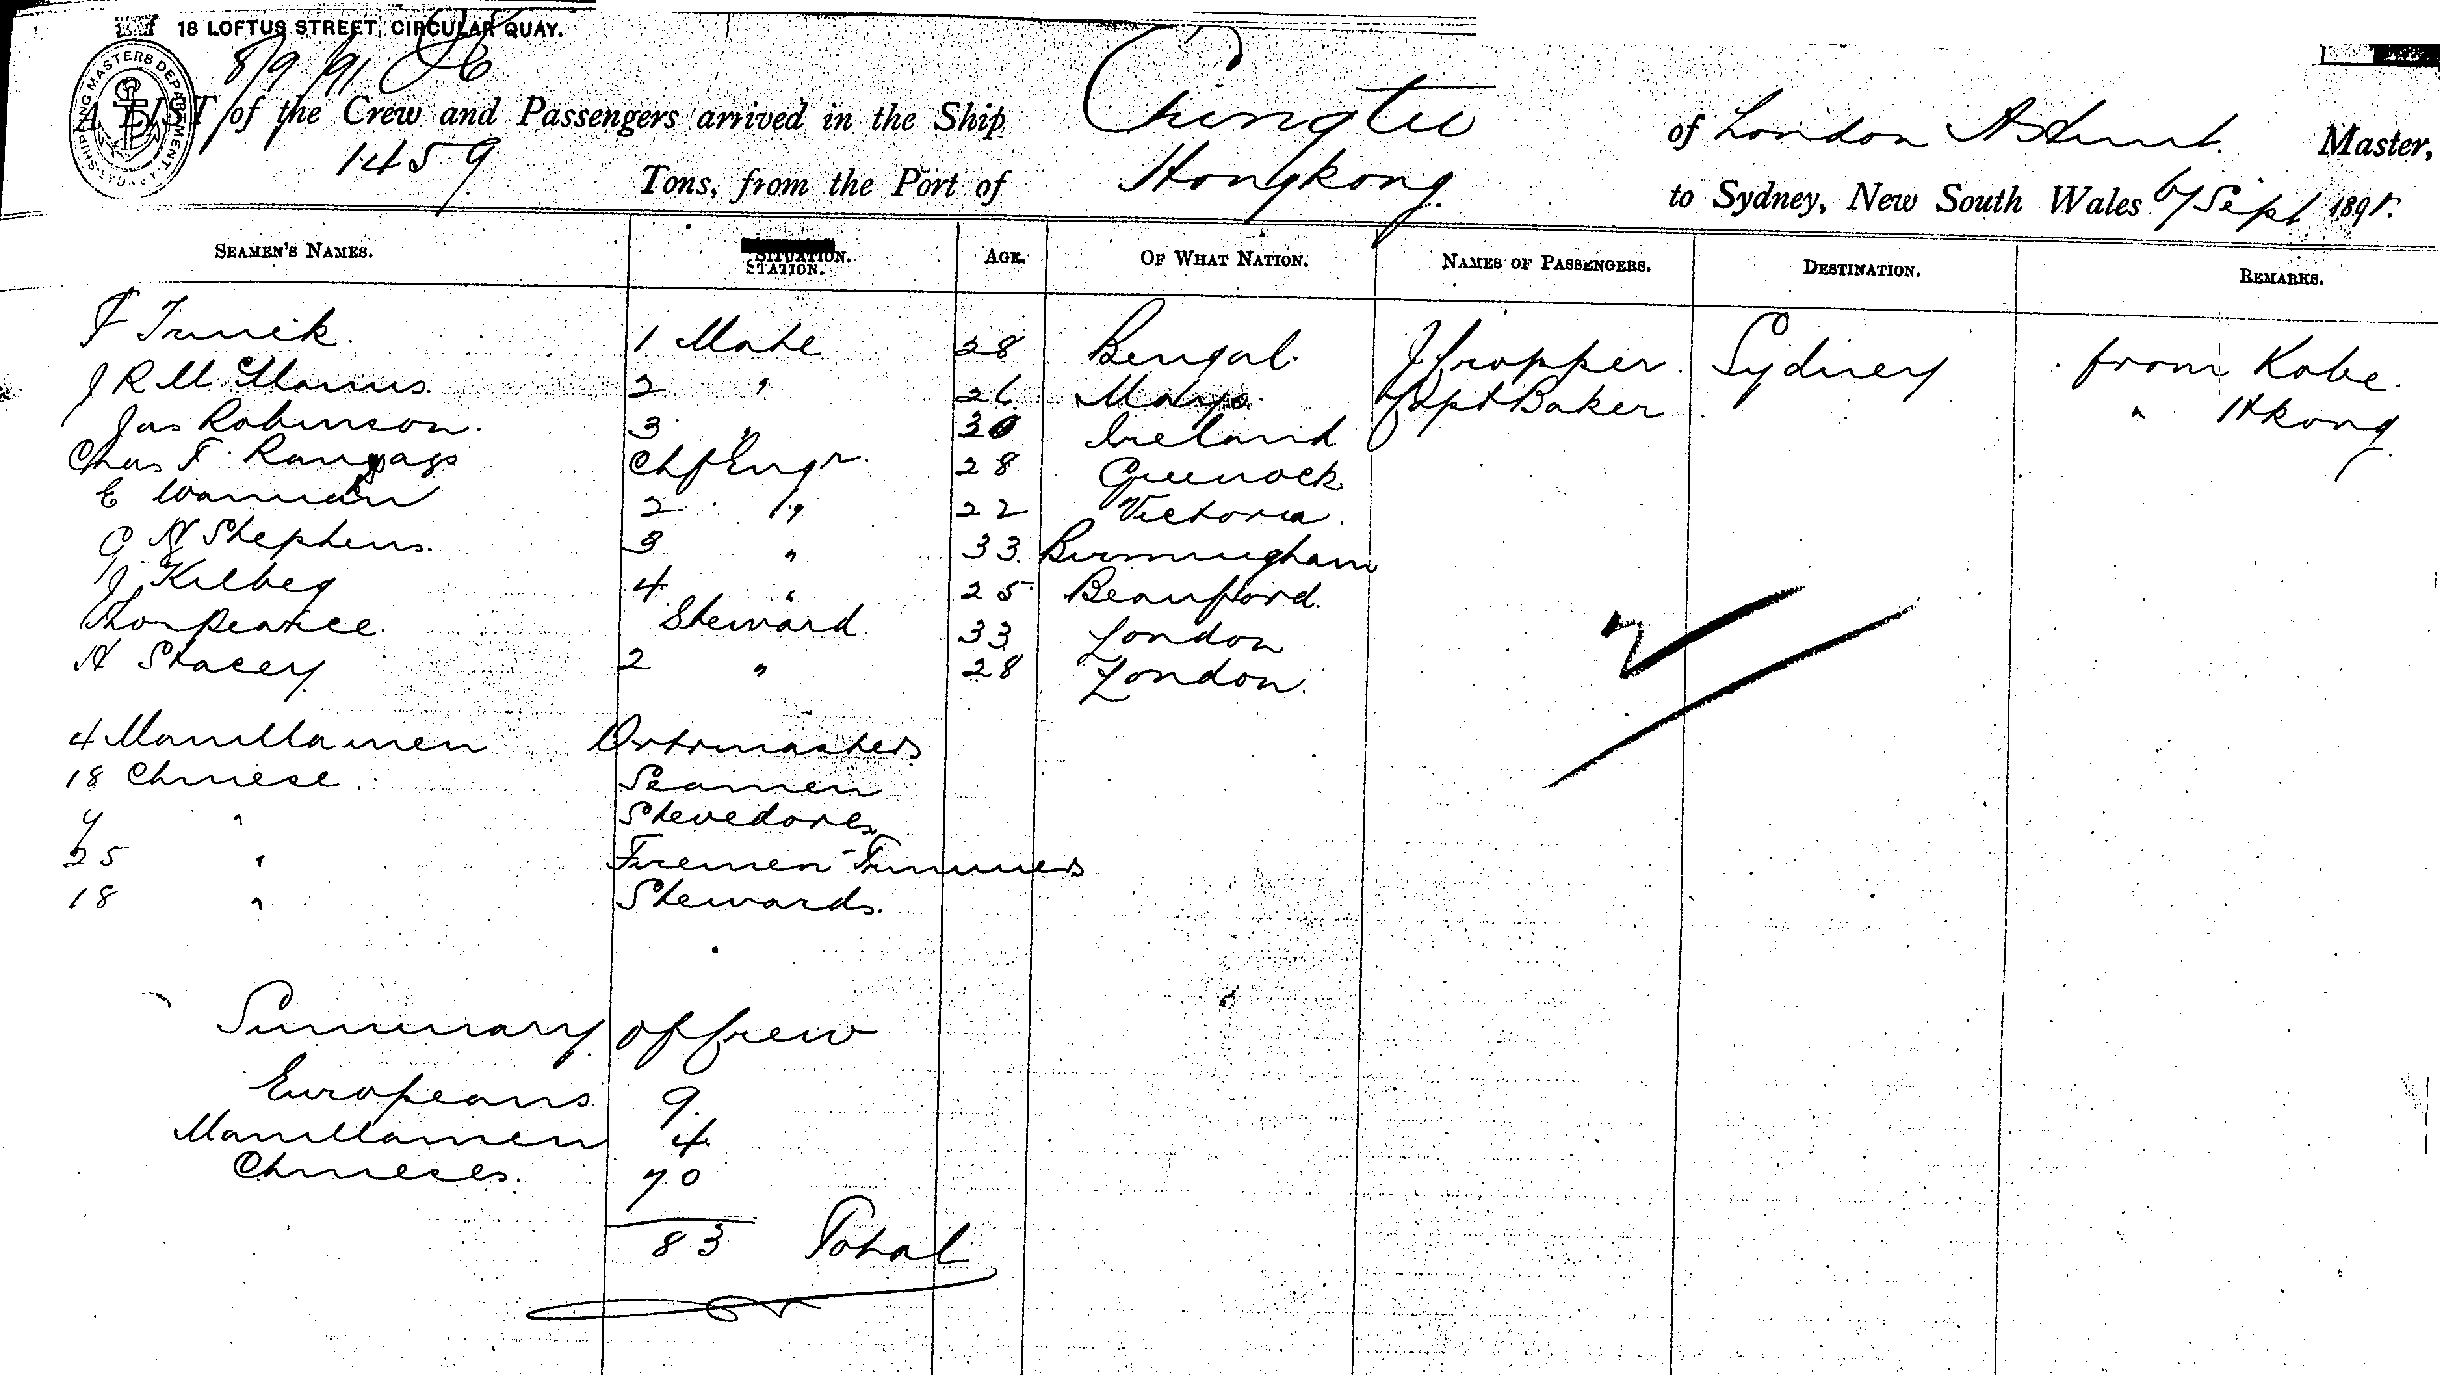 18 LOFTUS STREET, CIRCULAR QUAY.
8/9/91
SHIPPING MASTERS DEPARTMENT
A LIST of the Crew and Passengers arrived in the Ship Chingtu of London Master,
1459 Tons, from the Port of Hongkong. to Sydney, New South Wales 6/7 Sept 1891.
SEAMEN'S NAMES. SITUATION. STATION. AGE. OF WHAT NATION. NAMES OF PASSENGERS. DESTINATION. REMARKS.
F 1 Mate 28 Bengal. J Cropper. Sydney from Kobe.
J R M 2 " 26 Capt Baker " Hkong
Jas Robinson. 3 " 30 Ireland
Chas F. Chf Engr. 28 Greenock
E 2 " 22 Victoria.
G H Stephens. 3 " 33 Birmingham
J Kilbeg 4 " 25 Beauford.
Steward 33 London
H Stacey 2 " 28 London.
4 Manillamen Qrtrmasters
18 Chinese Seamen
9 " Stevedores
25 " Firemen Trimmers
18 " Stewards.
Summary of Crew
Europeans 9.
Manillamen 4
Chineses. 70
83 Total